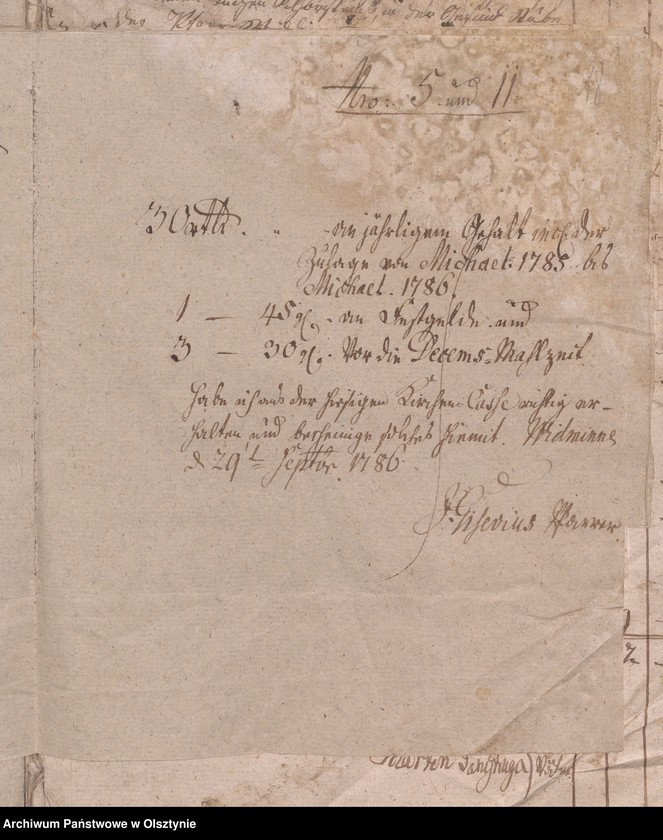 der Pfarr
Nro: 5. und 11.
30 rthl. " - an jährligem Gehalt incl. der
Zulage von Michael: 1785. bis
Michael. 1786
1 — 45 gl. - an Festgelde. und
3 — 30 gl. Vor die Decems-Mahlzeit
habe ich aus der hiesigen Kirchen Casse richtig er-
halten, und bescheinige solches hiemit. Widminne
d 29t Septbr. 1786.
Gisevius Pfarrer.
Archiwum Państwowe w Olsztynie